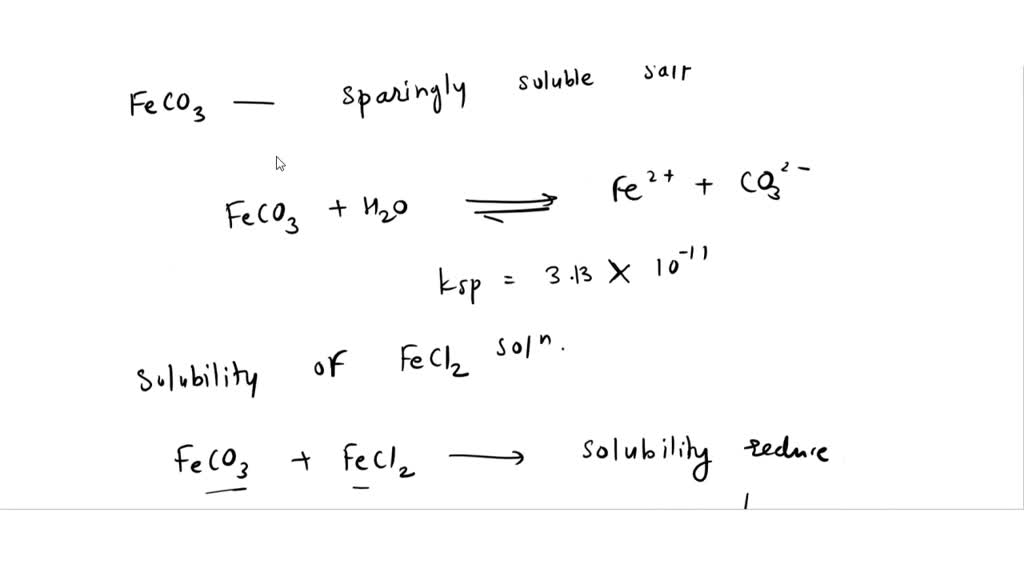 FeCO₃ — sparingly soluble salt
FeCO₃ + H₂O ⇌ Fe²⁺ + CO₃²⁻
ksp = 3.13 × 10⁻¹¹
Solubility of FeCl₂ solⁿ.
FeCO₃ + FeCl₂ → solubility reduce